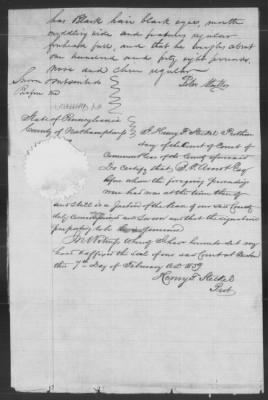 has Black hair black eyes, mouth
middling size and features regular
forehead full, and that he weighs about
one hundred and fifty eight pounds.
nose and chin regular
Sworn &
Before me
State of Pennsylvania
County of Northampton
I Henry F Steckel Prothono
tary of the Court of
Common Pleas of the County aforesaid
Do certify that Esq
before whom the foregoing proceedings
was had was at the time thereof
and still is a Justice of the Peace of our said County
duly Commissioned and Sworn and that the signature
purporting to be is genuine
In Witness Whereof I have hereunto set my
hand & affixed the seal of our said Court at Easton
this 7th Day of February A.D. 1859
Henry F Steckel
Prot